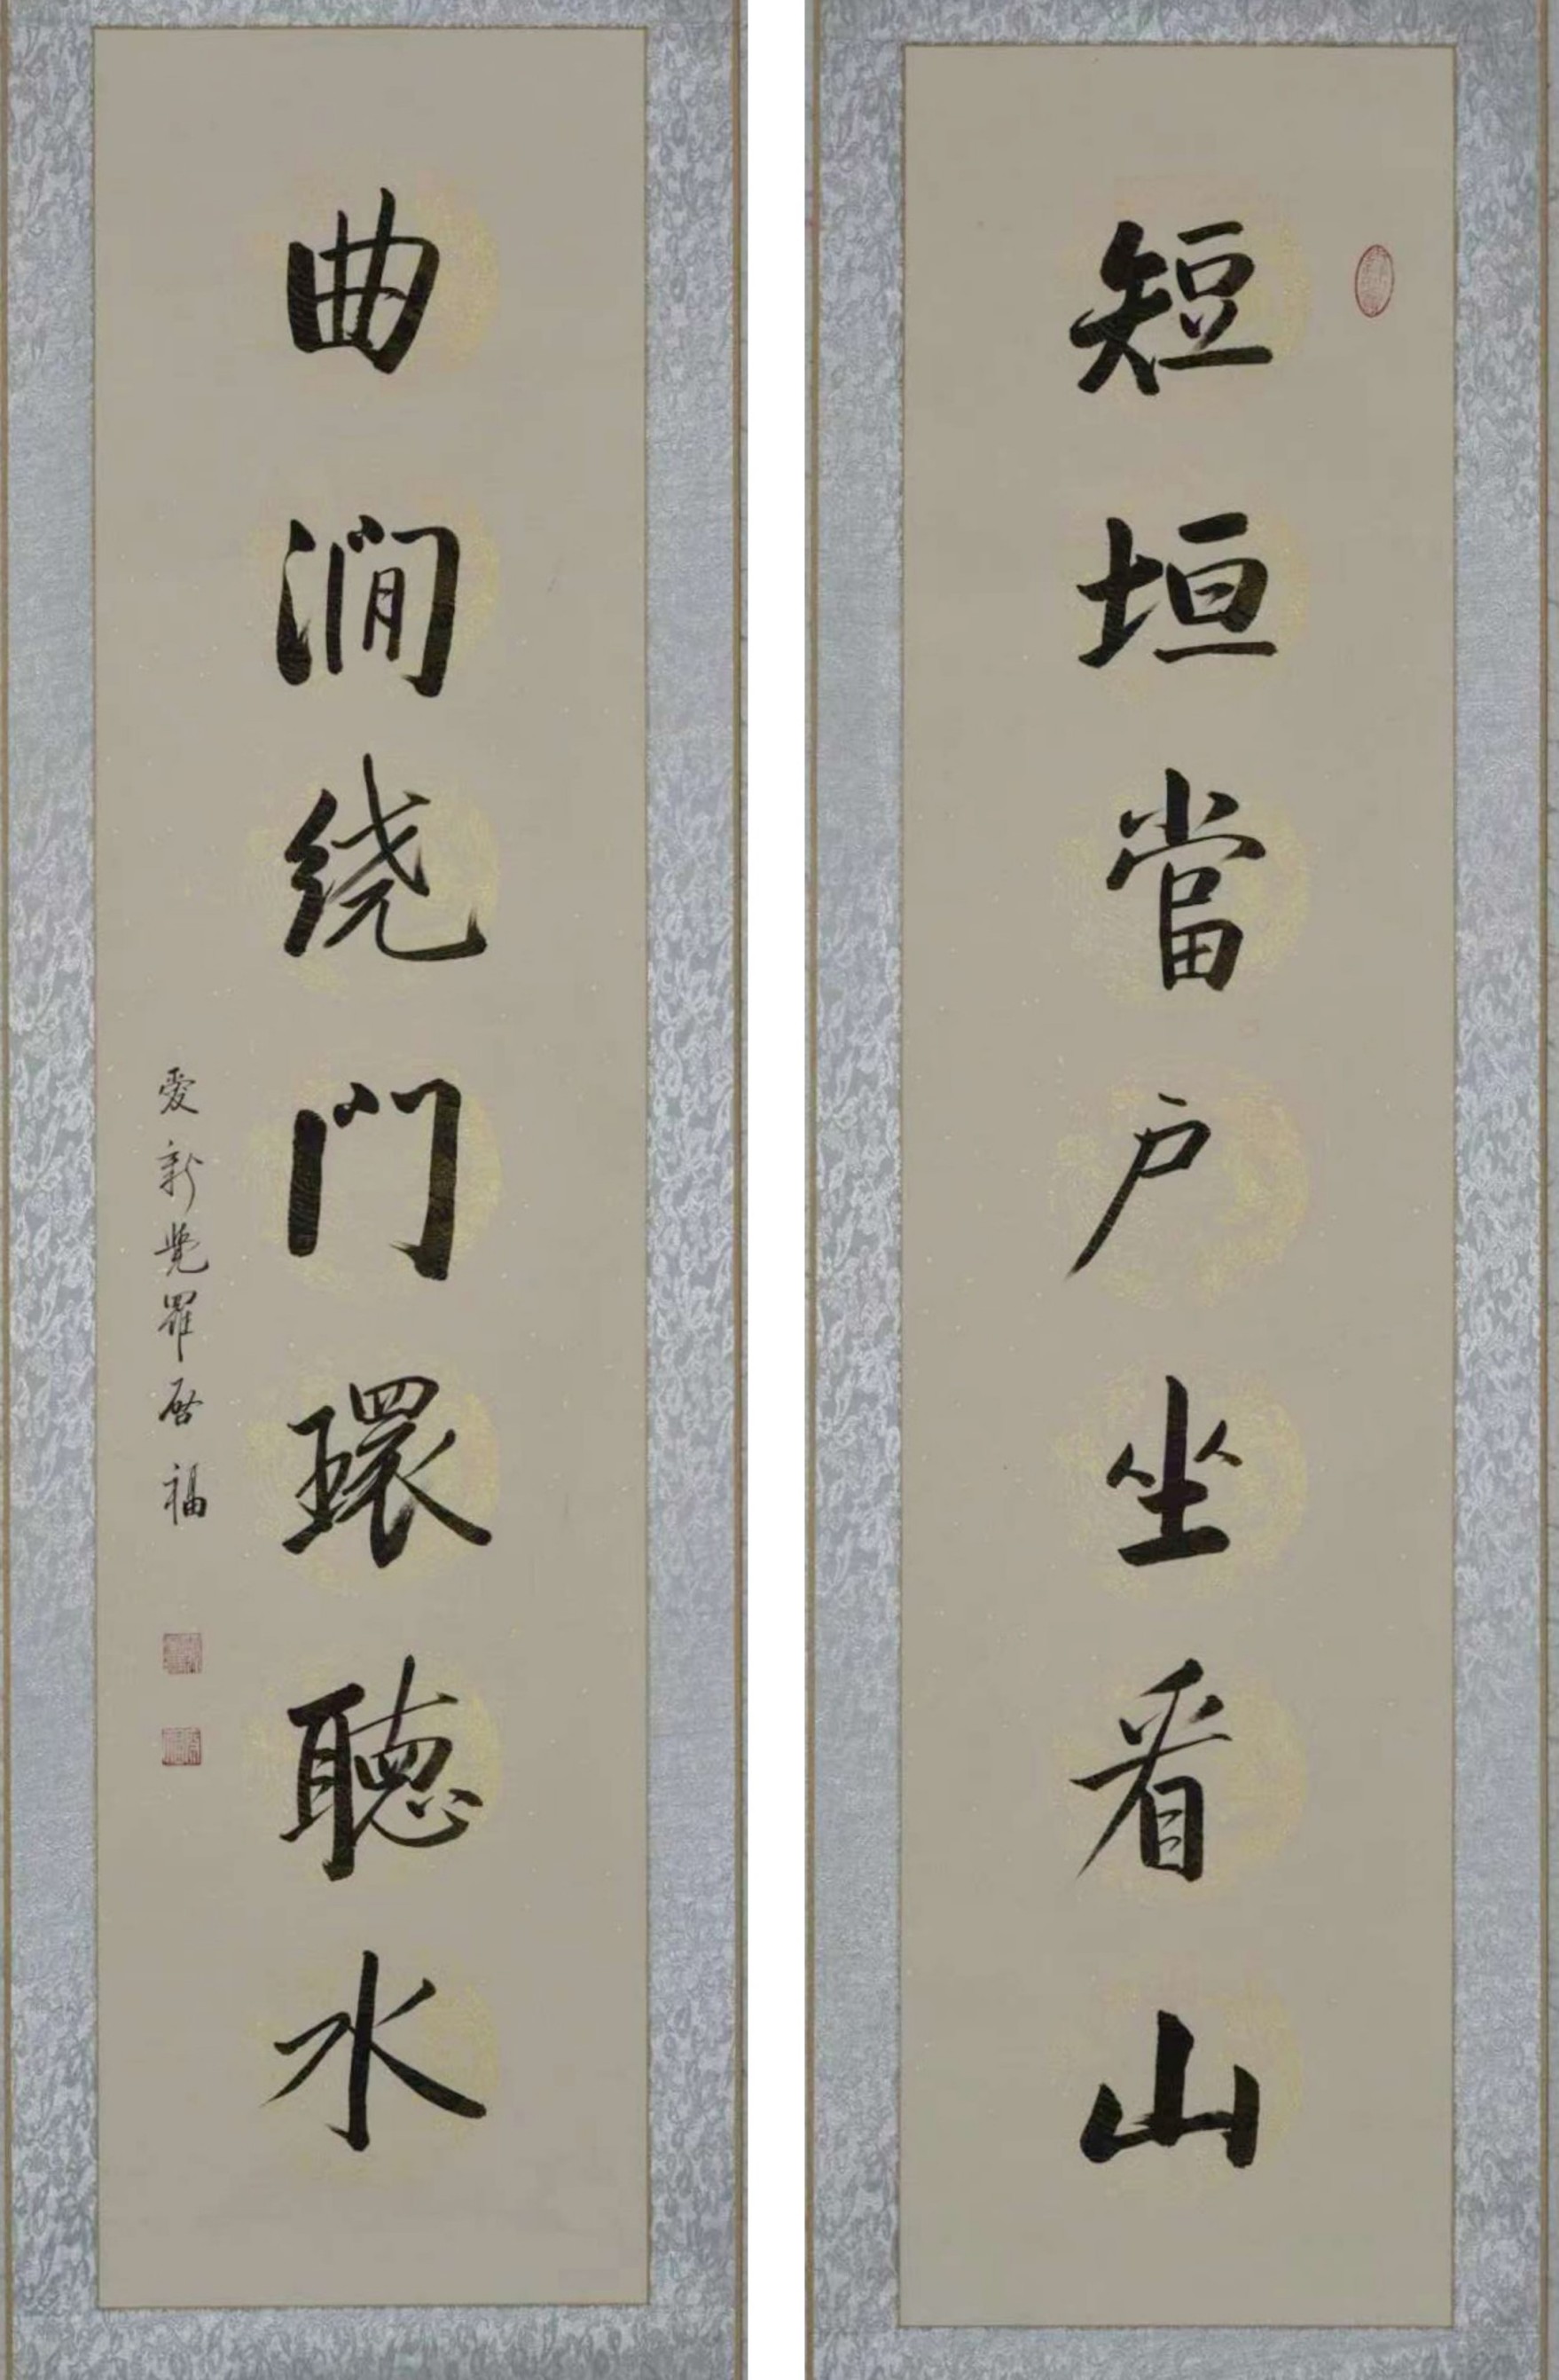 短垣當户坐看山
曲澗绕门環聽水
爱新覺羅啓福